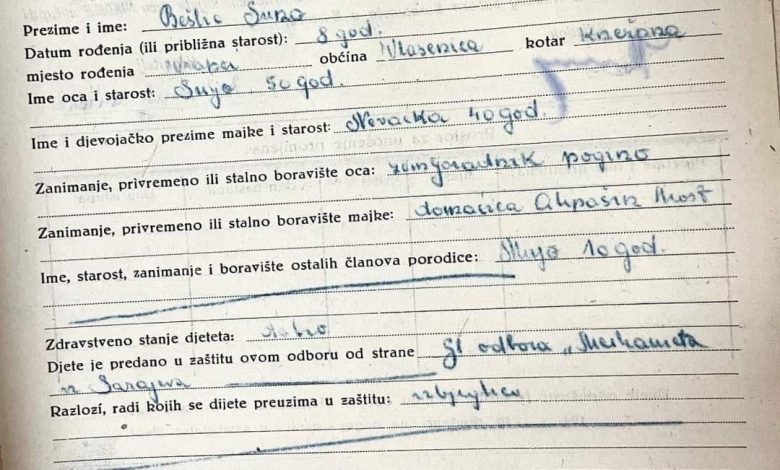 Prezime i ime: Bešlić Suna
Datum rođenja (ili približna starost): 8 god.
mjesto rođenja općina Vlasenica kotar Knežina
Ime oca i starost: Suljo 50 god.
Ime i djevojačko prezime majke i starost: Novalka 40 god.
Zanimanje, privremeno ili stalno boravište oca: zemljoradnik pogino
Zanimanje, privremeno ili stalno boravište majke: domaćica Alipašin Most
Ime, starost, zanimanje i boravište ostalih članova porodice: Mujo 10 god.
Zdravstveno stanje djeteta: dobro
Djete je predano u zaštitu ovom odboru od strane Gl odbora „Merhameta
iz Sarajeva
Razlozi, radi kojih se dijete preuzima u zaštitu: izbjeglica